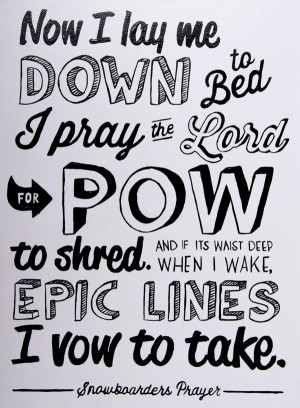 Now I lay me
DOWN to Bed
I pray the Lord
FOR POW
to shred. AND IF ITS WAIST DEEP
WHEN I WAKE,
EPIC LINES
I vow to take.
Snowboarders Prayer